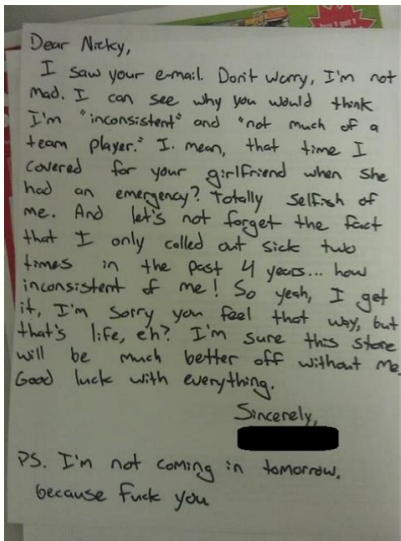 Dear Nicky,
I saw your e-mail. Don't worry, I'm not
mad. I can see why you would think
I'm "inconsistent" and "not much of a
team player." I mean, that time I
covered for your girlfriend when she
had an emergency? Totally selfish of
me. And let's not forget the fact
that I only called out sick two
times in the past 4 years... how
inconsistent of me! So yeah, I get
it, I'm sorry you feel that way, but
that's life, eh? I'm sure this store
will be much better off without me.
Good luck with everything.
Sincerely,
PS. I'm not coming in tomorrow.
because fuck you